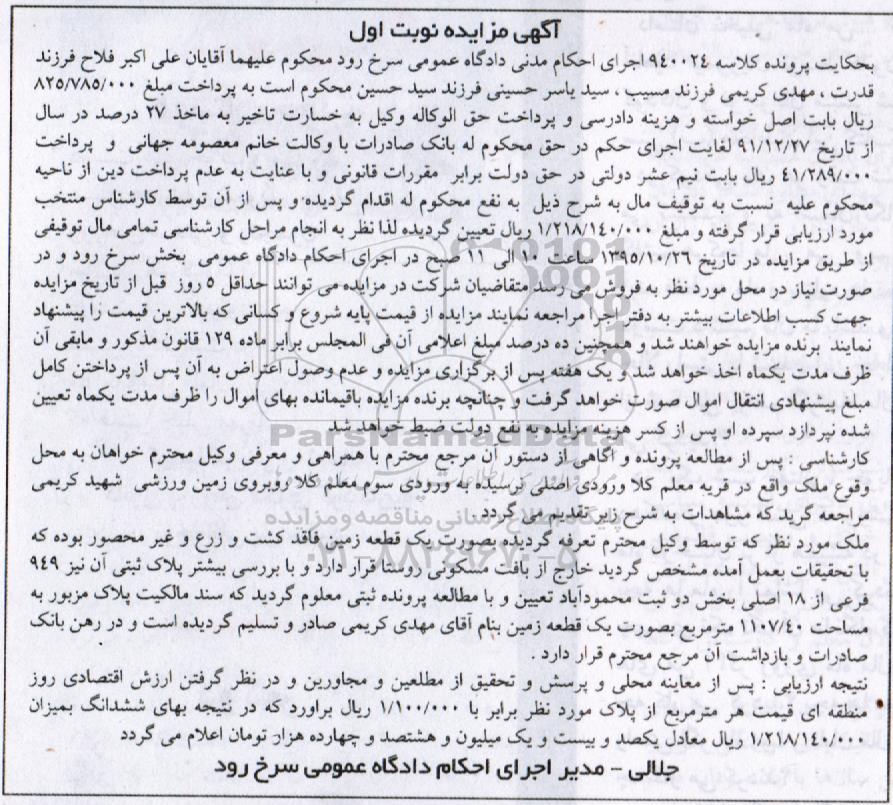 آگهی مزایده نوبت اول
بحکایت پرونده کلاسه ۹٤۰۰۲٤ اجرای احکام مدنی دادگاه عمومی سرخ رود محکوم علیهما آقایان علی اکبر فلاح فرزند
قدرت ، مهدی کریمی فرزند مسیب ، سید یاسر حسینی فرزند سید حسین محکوم است به پرداخت مبلغ ۸۲۵/۷۸۵/۰۰۰
ریال بابت اصل خواسته و هزینه دادرسی و پرداخت حق الوکاله وکیل به خسارت تاخیر به ماخذ ۲۷ درصد در سال
از تاریخ ۹۱/۱۲/۲۷ لغایت اجرای حکم در حق محکوم له بانک صادرات با وکالت خانم معصومه جهانی و پرداخت
٤۱/۲۸۹/۰۰۰ ریال بابت نیم عشر دولتی در حق دولت برابر مقررات قانونی و با عنایت به عدم پرداخت دین از ناحیه
محکوم علیه نسبت به توقیف مال به شرح ذیل به نفع محکوم له اقدام گردیده و پس از آن توسط کارشناس منتخب
مورد ارزیابی قرار گرفته و مبلغ ۱/۲۱۸/۱٤۰/۰۰۰ ریال تعیین گردیده لذا نظر به انجام مراحل کارشناسی تمامی مال توقیفی
از طریق مزایده در تاریخ ۱۳۹۵/۱۰/۲٦ ساعت ۱۰ الی ۱۱ صبح در اجرای احکام دادگاه عمومی بخش سرخ رود و در
صورت نیاز در محل مورد نظر به فروش می رسد متقاضیان شرکت در مزایده می توانند حداقل ۵ روز قبل از تاریخ مزایده
جهت کسب اطلاعات بیشتر به دفتر اجرا مراجعه نمایند مزایده از قیمت پایه شروع و کسانی که بالاترین قیمت را پیشنهاد
نمایند برنده مزایده خواهند شد و همچنین ده درصد مبلغ اعلامی آن فی المجلس برابر ماده ۱۲۹ قانون مذکور و مابقی آن
ظرف مدت یکماه اخذ خواهد شد و یک هفته پس از برگزاری مزایده و عدم وصول اعتراض به آن پس از پرداختن کامل
مبلغ پیشنهادی انتقال اموال صورت خواهد گرفت و چنانچه برنده مزایده باقیمانده بهای اموال را ظرف مدت یکماه تعیین
شده نپردازد سپرده او پس از کسر هزینه مزایده به نفع دولت ضبط خواهد شد
کارشناسی : پس از مطالعه پرونده و آگاهی از دستور آن مرجع محترم با همراهی و معرفی وکیل محترم خواهان به محل
وقوع ملک واقع در قریه معلم کلا ورودی اصلی نرسیده به ورودی سوم معلم کلا روبروی زمین ورزشی شهید کریمی
مراجعه گرید که مشاهدات به شرح زیر تقدیم می گردد
ملک مورد نظر که توسط وکیل محترم تعرفه گردیده بصورت یک قطعه زمین فاقد کشت و زرع و غیر محصور بوده که
با تحقیقات بعمل آمده مشخص گردید خارج از بافت مسکونی روستا قرار دارد و با بررسی بیشتر پلاک ثبتی آن نیز ۹٤۹
فرعی از ۱۸ اصلی بخش دو ثبت محمودآباد تعیین و با مطالعه پرونده ثبتی معلوم گردید که سند مالکیت پلاک مزبور به
مساحت ۱۱۰۷/٤۰ مترمربع بصورت یک قطعه زمین بنام آقای مهدی کریمی صادر و تسلیم گردیده است و در رهن بانک
صادرات و بازداشت آن مرجع محترم قرار دارد .
نتیجه ارزیابی : پس از معاینه محلی و پرسش و تحقیق از مطلعین و مجاورین و در نظر گرفتن ارزش اقتصادی روز
منطقه ای قیمت هر مترمربع از پلاک مورد نظر برابر با ۱/۱۰۰/۰۰۰ ریال براورد که در نتیجه بهای ششدانگ بمیزان
۱/۲۱۸/۱٤۰/۰۰۰ ریال معادل یکصد و بیست و یک میلیون و هشتصد و چهارده هزار تومان اعلام می گردد
جلالی – مدیر اجرای احکام دادگاه عمومی سرخ رود
ParsNamadData
پایگاه اطلاع رسانی مناقصه و مزایده
۰۲۱-۸۸۳۴۹۶۷۰-۵